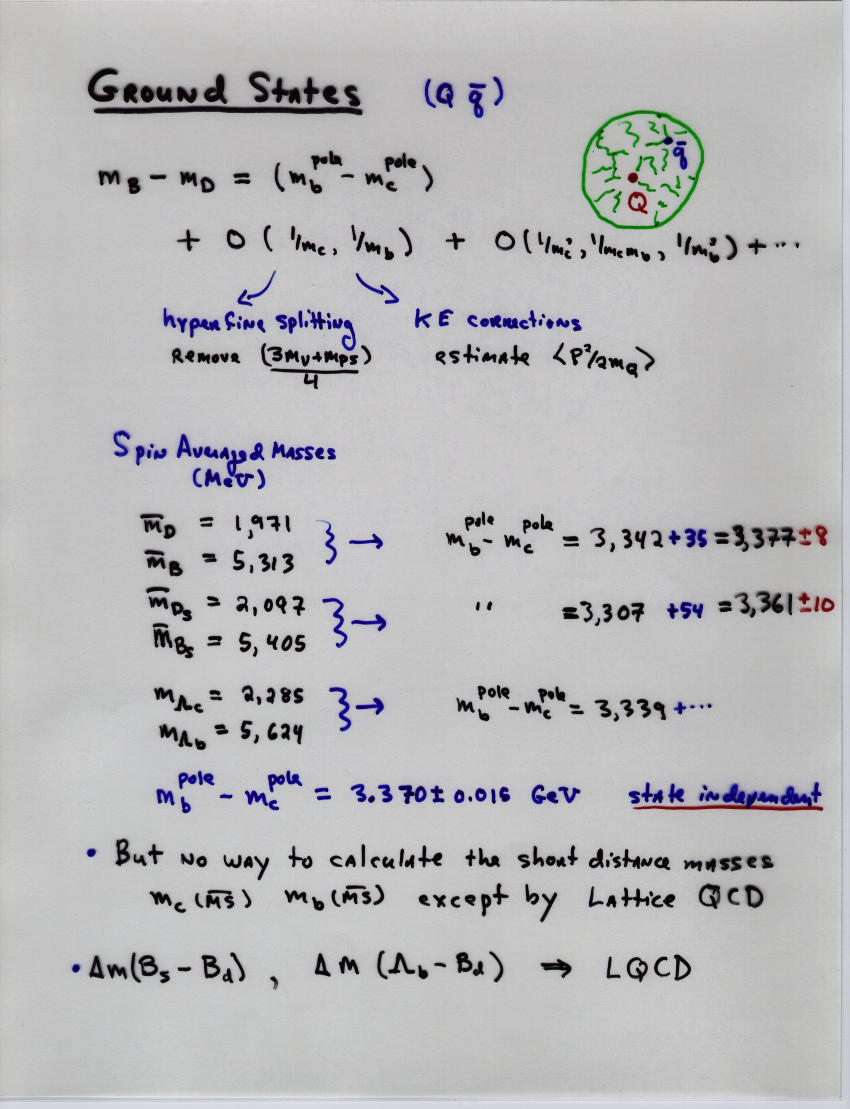 Ground States (Q q̄)
m_B − m_D = (m_b^pole − m_c^pole)
q̄
Q
+ O (1/m_c, 1/m_b) + O(1/m_c², 1/m_c m_b, 1/m_b²) + ...
hyperfine splitting KE corrections
Remove (3m_V + m_PS)/4 estimate <P²/2m_Q>
Spin Averaged Masses
(MeV)
m̄_D = 1,971
m̄_B = 5,313
} → m_b^pole − m_c^pole = 3,342 +35 = 3,377 ±8
m̄_Ds = 2,097
m̄_Bs = 5,405
} → '' = 3,307 +54 = 3,361 ±10
m_Λc = 2,285
m_Λb = 5,624
} → m_b^pole − m_c^pole = 3,339 + ...
m_b^pole − m_c^pole = 3.370 ± 0.015 GeV state independent
• But no way to calculate the short distance masses
m_c (M̄S̄) m_b (M̄S̄) except by Lattice QCD
• Δm(B_s − B_d) , Δm (Λ_b − B_d) ⇒ LQCD